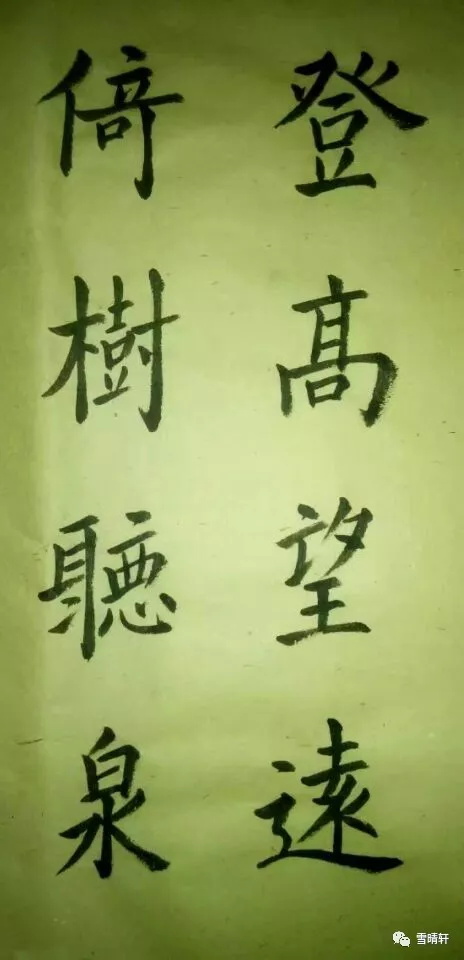 登高望遠
倚樹聽泉
雪晴轩